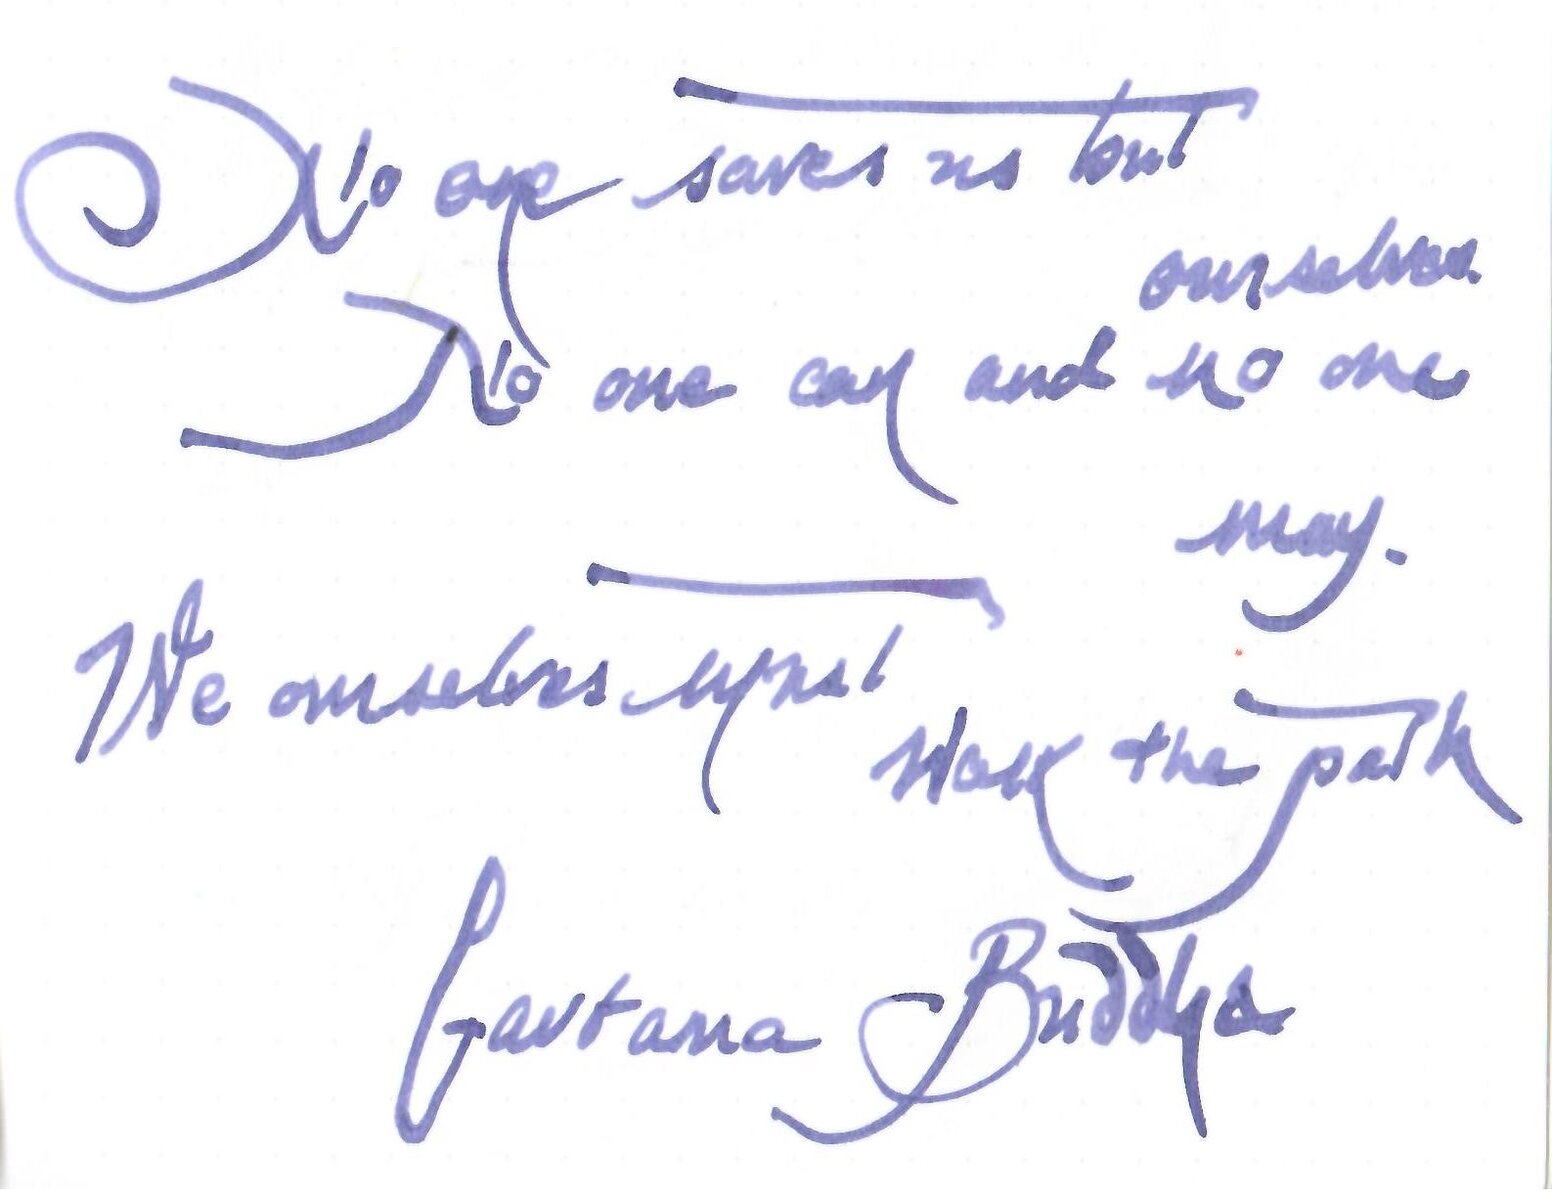 No one saves us but
ourselves.
No one can and no one
may.
We ourselves must
walk the path
Gautama Buddha